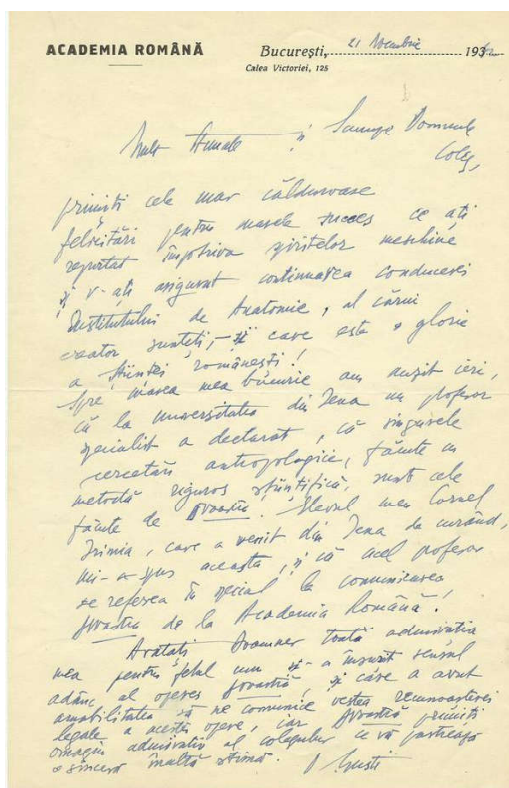 ACADEMIA ROMÂNĂ
București, 21 Noembrie 193
Calea Victoriei, 125
Mult Stimate și Scumpe Domnule
Coleg,
primiți cele mai călduroase
felicitări pentru marele succes ce ați
repurtat împotriva spiritelor meschine
și v-ați asigurat continuarea conducerei
Institutului de Anatomie, al cărui
creator sunteți, – și care este o glorie
a științei românești!
Spre marea mea bucurie am auzit ieri,
că la Universitatea din Jena un profesor
specialist a declarat, că singurele
cercetări antropologice, făcute cu
metodă riguros științifică, sunt cele
făcute de Dvoastră. Elevul meu Cornel
Irimia, care a venit din Jena de curând,
mi-a spus aceasta, și că acel profesor
se referea în special la comunicarea
Dvoastră de la Academia Română!
Arătați Doamnei toată admirația
mea pentru felul cum și-a însușit sensul
adânc al operei Dvoastră, și care a avut
amabilitatea să ne comunice vestea recunoașterei
legale a acestei opere, iar Dvoastră primiți
omagiu admirativ al colegului ce vă păstrează
o sinceră înaltă stimă.
D Gusti